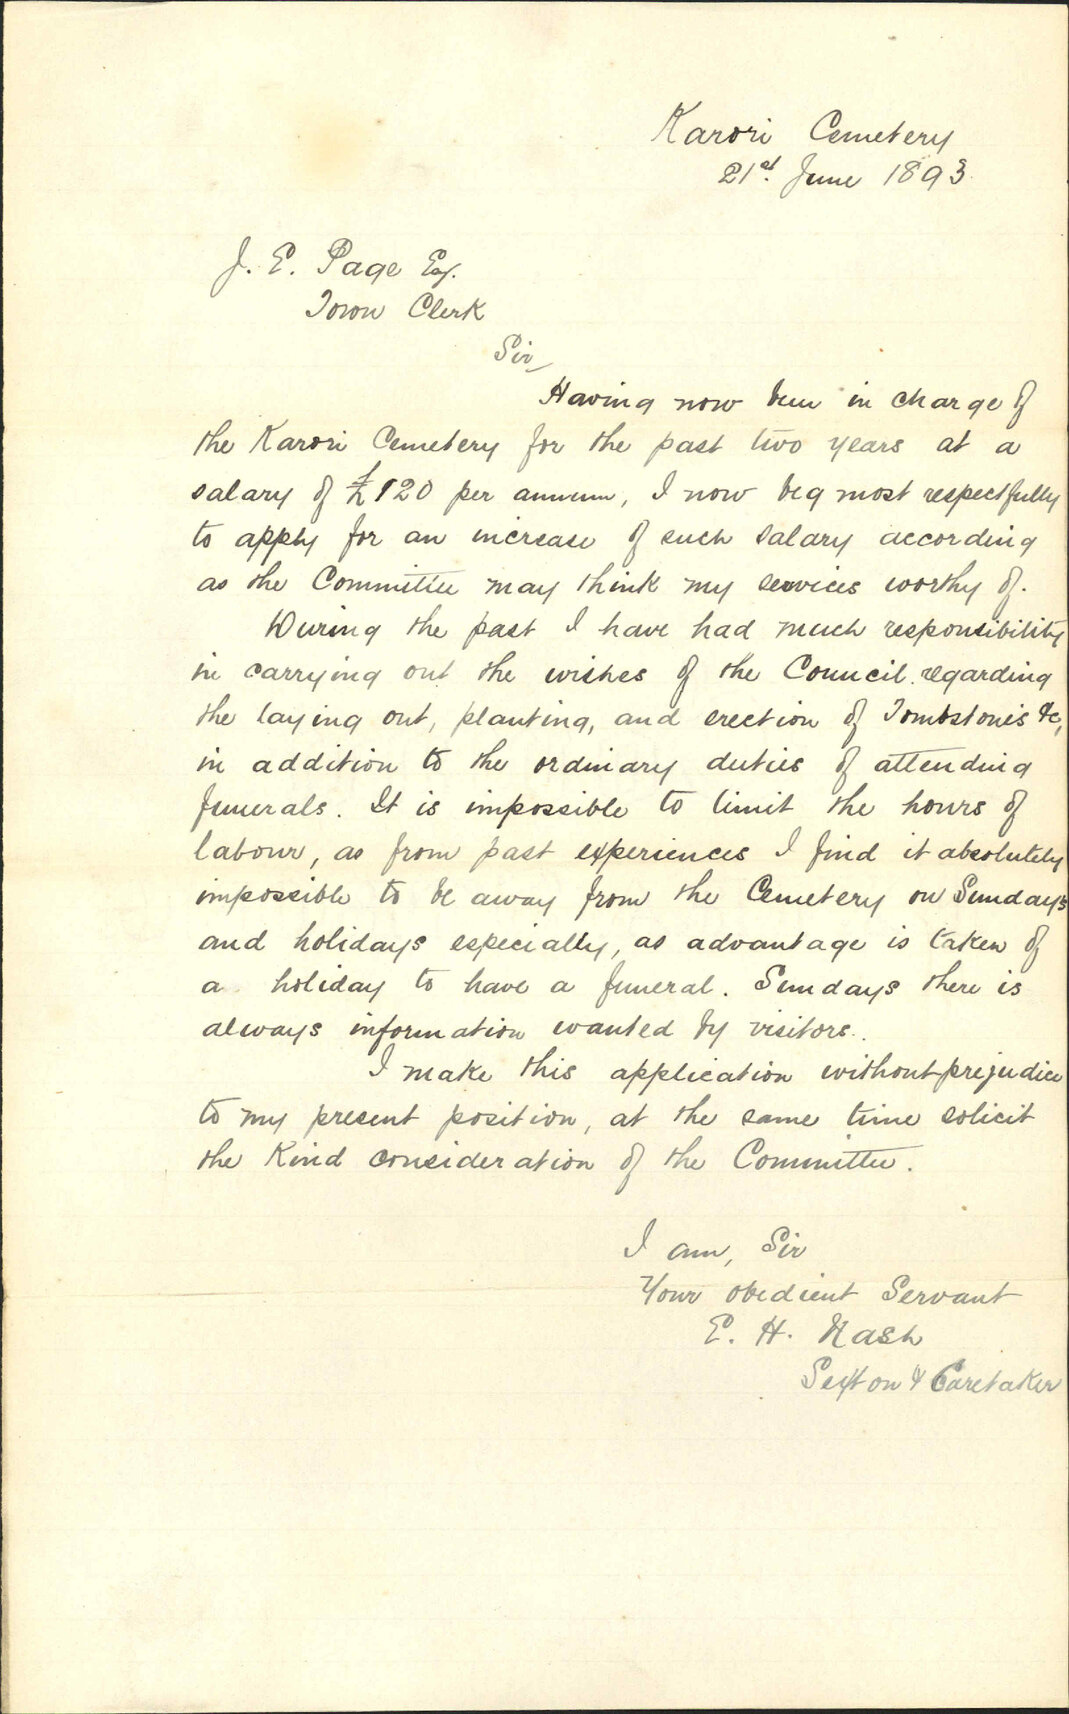 Karori Cemetery
21st. June 1893.
J. E. Page Esq.
Town Clerk
Sir,
Having now been in charge of
the Karori Cemetery for the past two years at a
salary of £120 per annum, I now beg most respectfully
to apply for an increase of such salary according
as the Committee may think my services worthy of.
During the past I have had much responsibility
in carrying out the wishes of the Council regarding
the laying out, planting, and erection of Tombstones &c,
in addition to the ordinary duties of attending
funerals. It is impossible to limit the hours of
labour, as from past experiences I find it absolutely
impossible to be away from the Cemetery on Sundays
and holidays especially, as advantage is taken of
a holiday to have a funeral. Sundays there is
always information wanted by visitors.
I make this application without prejudice
to my present position, at the same time solicit
the kind consideration of the Committee.
I am, Sir
Your obedient Servant
E. H. Nash
Sexton & Caretaker